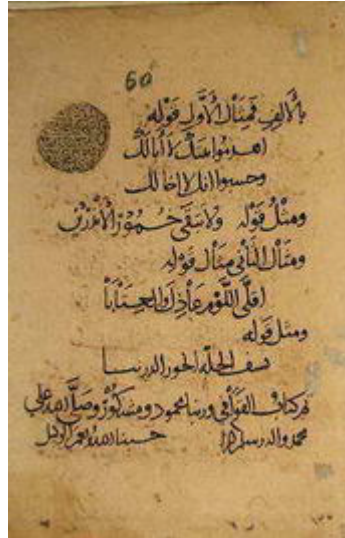 60
بالالف فمثال الاول قوله
اهدموا بيتك لا ابالك
وحسبوا انك لا اخا لك
ومثل قوله ولا تبقي خمور الاندرين
ومثال الثاني مثال قوله
اقلي اللوم عاذل والعتابا
ومثل قوله
تسف الجلة الخور الدرينا
تم كتاب القوافي وربنا محمود ومشكور وصلى الله على
محمد واله وسلم حسبنا الله ونعم الوكيل